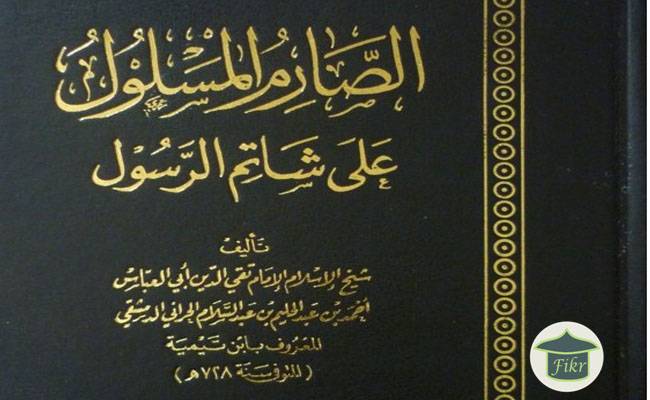 الصَّارِمُ المَسْلُولُ
عَلَى شَاتِمِ الرَّسُول
تأليف
شيخ الإسلام الإمام تقي الدين أبي العباس
أحمد بن عبد الحليم بن عبد السلام الحراني الدمشقي
المعروف بابن تيمية
(المتوفى سنة ٧٢٨هـ)
Fikr